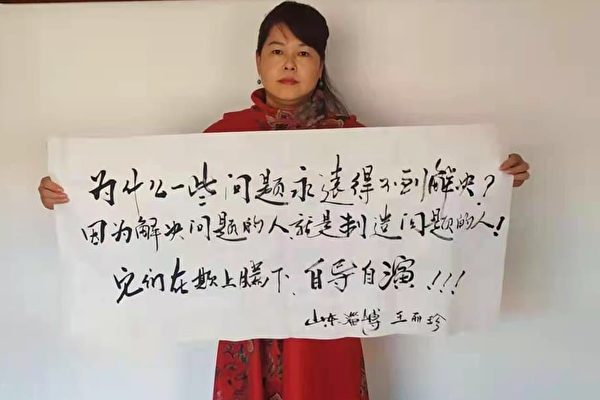 为什么一些问题永遠得不到解决？
因为解决问题的人，就是制造问题的人！
它们在欺上瞒下、自导自演！！！
山东淄博 王丽珍